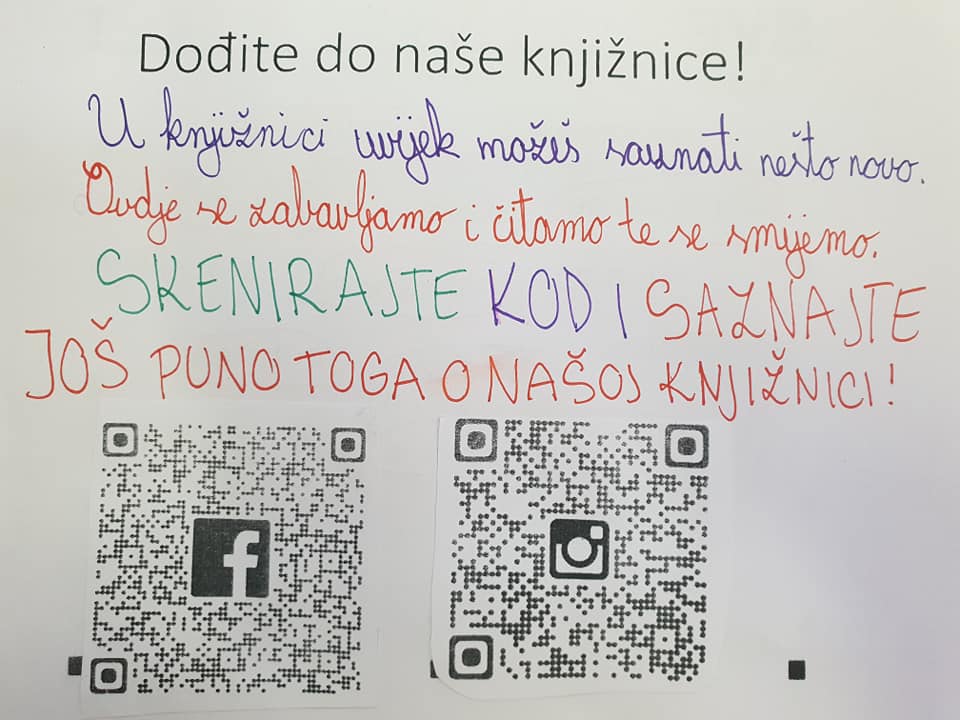 Dođite do naše knjižnice!
U knjižnici uvijek možeš saznati nešto novo.
Ovdje se zabavljamo i čitamo te se smijemo.
SKENIRAJTE KOD I SAZNAJTE
JOŠ PUNO TOGA O NAŠOJ KNJIŽNICI!